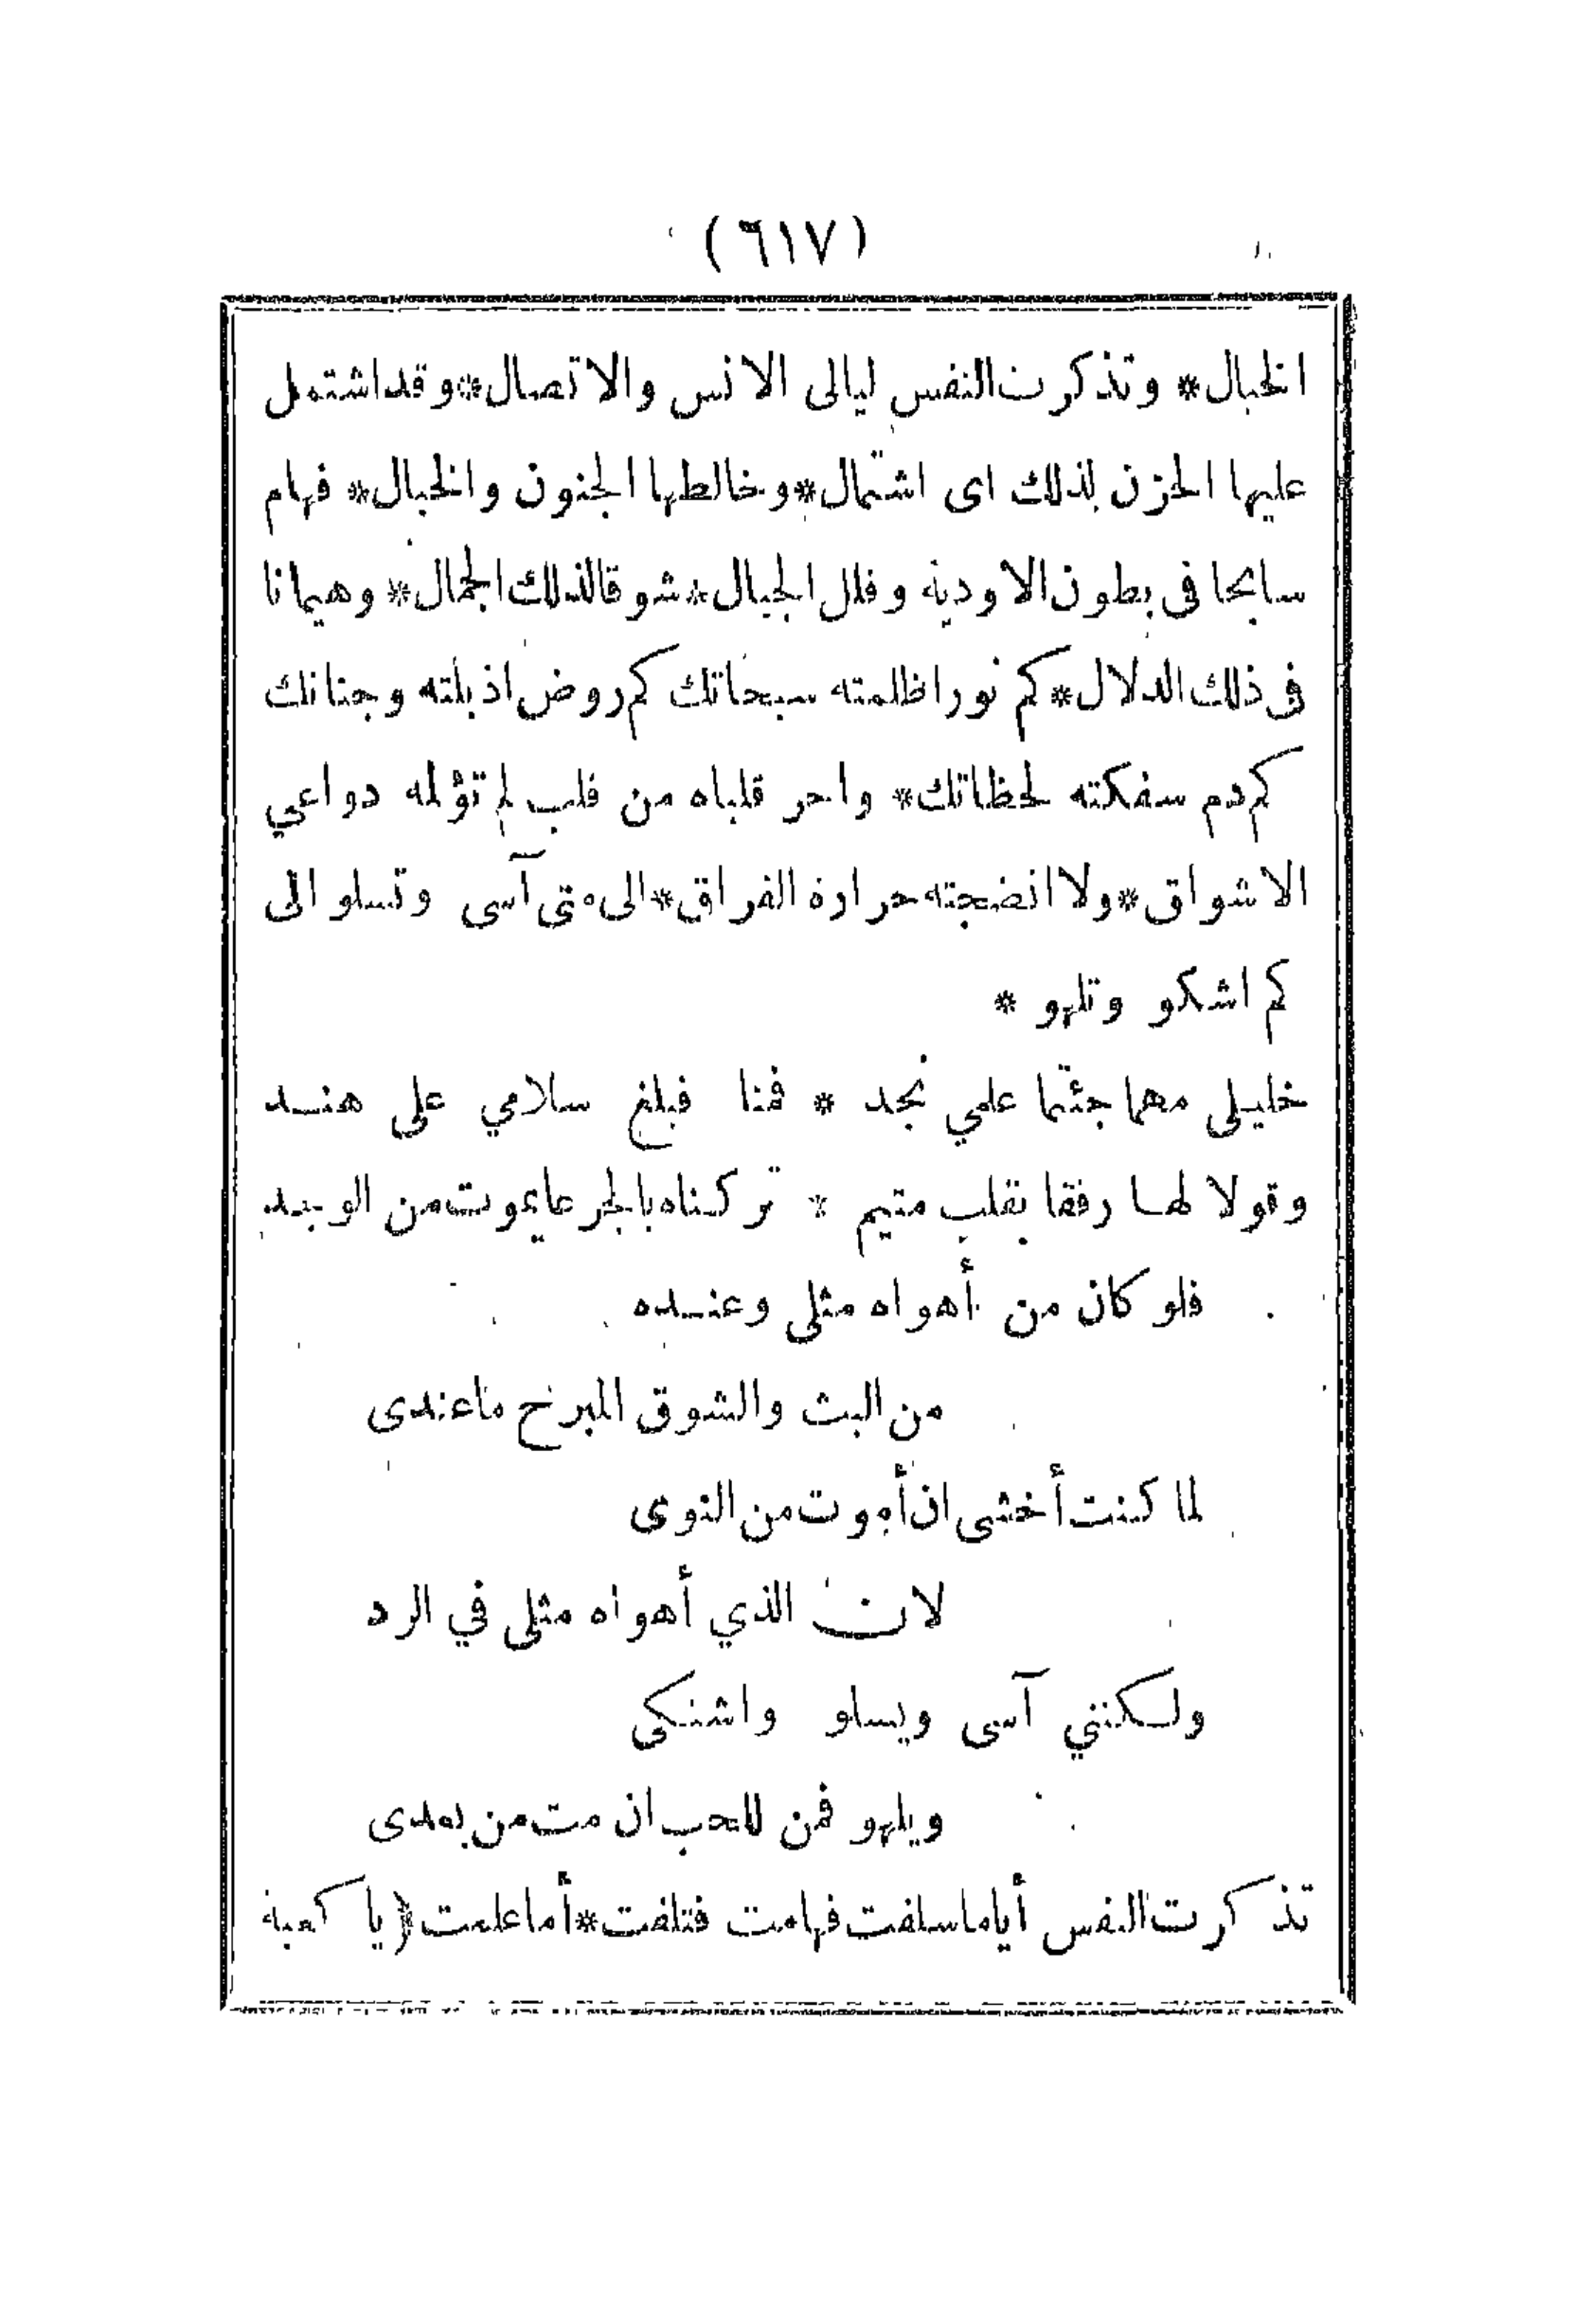 (٦١٧)
الخبال* وتذكرت النفس ليالى الانس والاتصال* وقد اشتمل
عليها الحزن لذلك اى اشتمال* وخالطها الجنون والخبال* فهام
سابحا فى بطون الاودية وقلل الجبال* شوقا لذلك الجمال* وهيمانا
فى ذلك الدلال* كم نور اظلمته سبحاتك كم روض اذبلته وجناتك
كم دم سفكته لحظاتك* واحر قلباه من قلب لم تؤلمه دواعي
الاشواق* ولا انضجته حرارة الفراق* الى متى آسى وتسلو الى
كم اشكو وتلهو *
خليلى مهما جئتما علمي نجد * فمنا فبلغ سلامي على هند
وقولا لها رفقا بقلب متيم * تركناه بالجرعا يموت من الوجد
فلو كان من أهواه مثلى وعنده
من البث والشوق المبرح ما عندى
لما كنت أخشى ان أموت من النوى
لان الذي أهواه مثلى في الرد
ولكنني آسى ويسلو واشتكى
ويلهو فمن للحب ان مت من بعدى
تذكرت النفس أياما سلفت فهامت فتلفت* أما علمت (يا كعبة